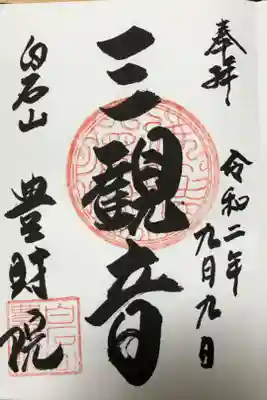 奉拝
令和二年九月九日
三観音
白石山
豊財院